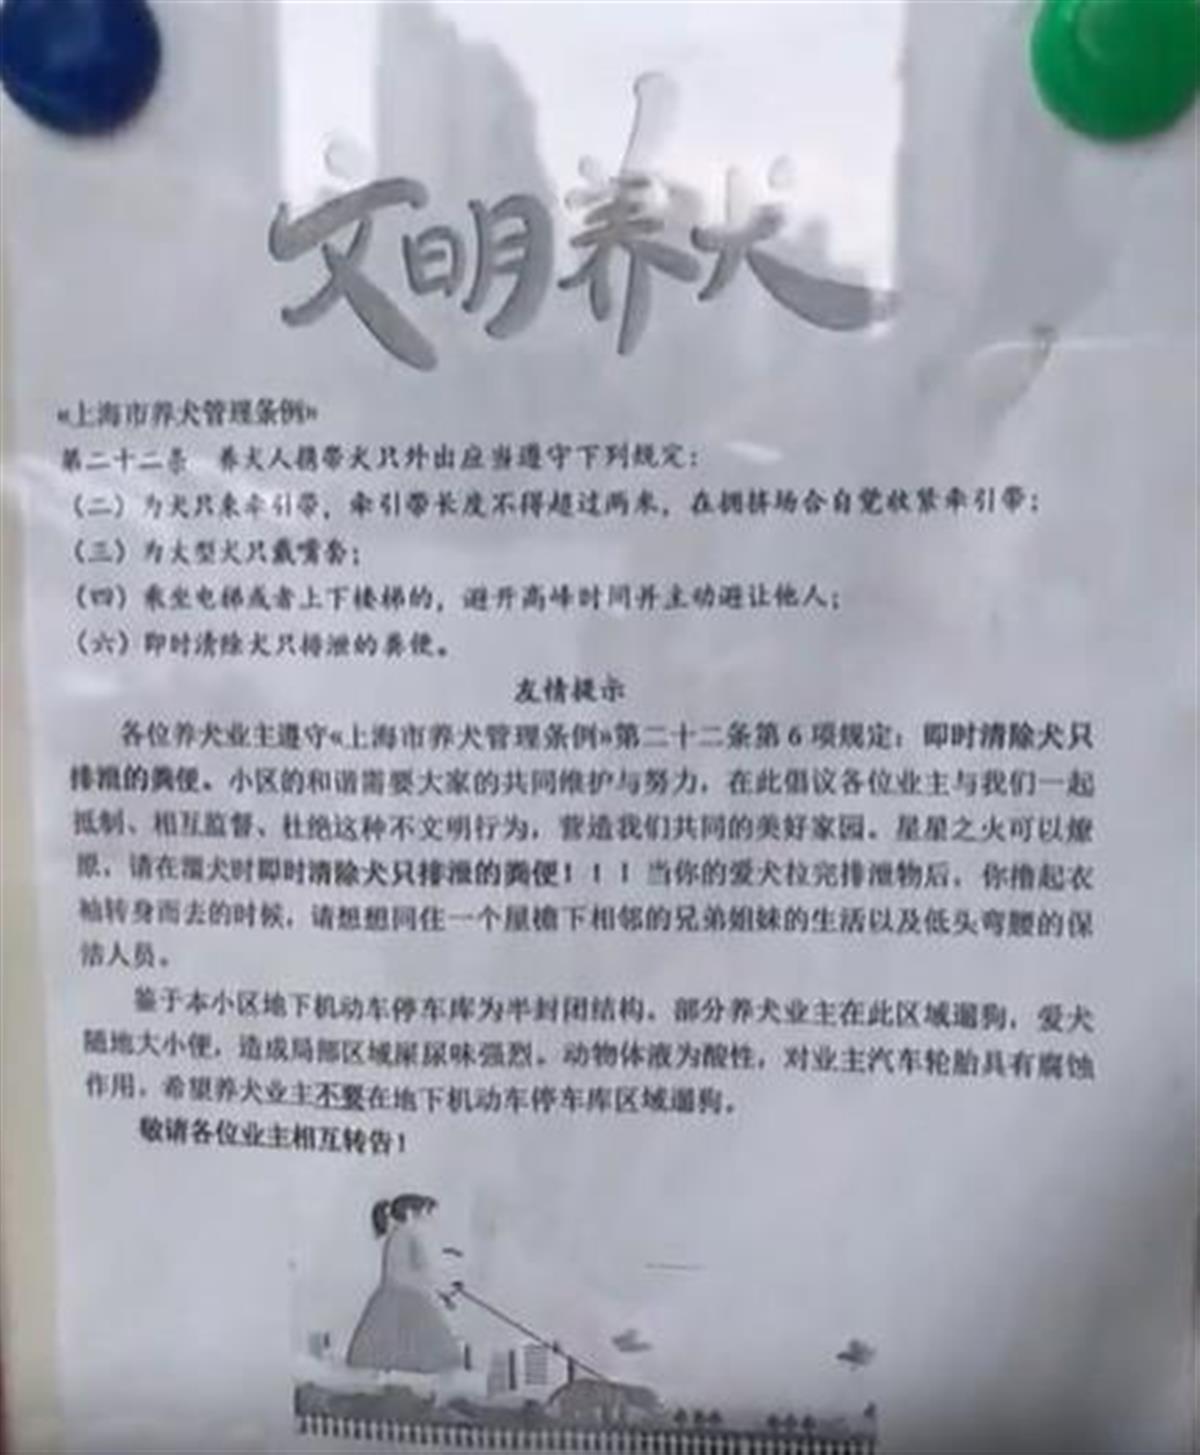 文明养犬
《上海市养犬管理条例》
第二十二条 养犬人携带犬只外出应当遵守下列规定：
（二）为犬只束牵引带，牵引带长度不得超过两米，在拥挤场合自觉收紧牵引带；
（三）为大型犬只戴嘴套；
（四）乘坐电梯或者上下楼梯的，避开高峰时间并主动避让他人；
（六）即时清除犬只排泄的粪便。
友情提示
各位养犬业主遵守《上海市养犬管理条例》第二十二条第6项规定：即时清除犬只
排泄的粪便。小区的和谐需要大家的共同维护与努力，在此倡议各位业主与我们一起
抵制、相互监督、杜绝这种不文明行为，营造我们共同的美好家园。星星之火可以燎
原，请在遛犬时即时清除犬只排泄的粪便！！！当你的爱犬拉完排泄物后，你撸起衣
袖转身而去的时候，请想想同住一个屋檐下相邻的兄弟姐妹的生活以及低头弯腰的保
洁人员。
鉴于本小区地下机动车停车库为半封闭结构。部分养犬业主在此区域遛狗，爱犬
随地大小便，造成局部区域屎尿味强烈。动物体液为酸性，对业主汽车轮胎具有腐蚀
作用。希望养犬业主不要在地下机动车停车库区域遛狗。
敬请各位业主相互转告！